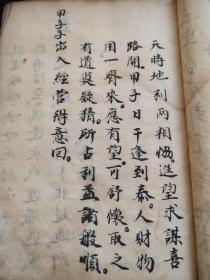 天時地利兩相悟。進望求謀喜
路開。甲子日干逢到泰。人財物
用一齊來。應有望。可舒懷。取之
有道莫疑猜。所占利益諸般順。
甲子子出入經營得意回。